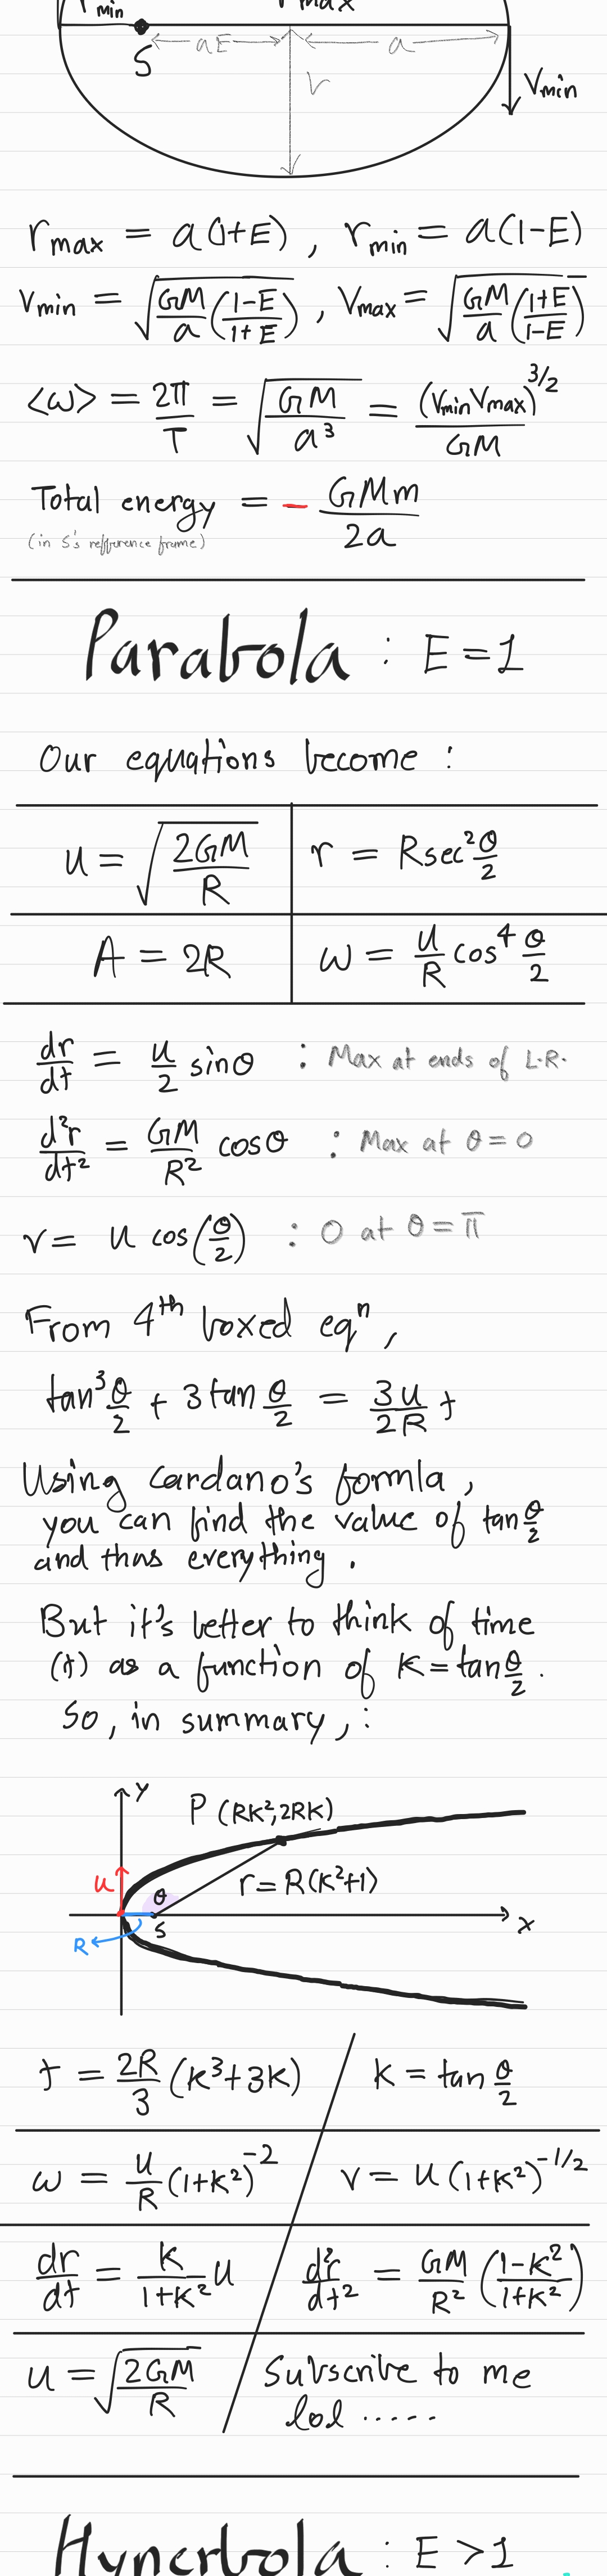 rmin vmax
S aE a
r Vmin
rmax = a(1+E) , rmin = a(1-E)
Vmin = √(GM/a (1-E/1+E)) , Vmax = √(GM/a (1+E/1-E))
<ω> = 2π/T = √(GM/a³) = (VminVmax)^3/2 / GM
Total energy = - GMm/2a
(in S's refference frame)
Parabola : E = 1
Our equations become :
u = √(2GM/R) r = Rsec² θ/2
A = 2R ω = u/R cos⁴ θ/2
dr/dt = u/2 sinθ : Max at ends of L.R.
d²r/dt² = GM/R² cosθ : Max at θ = 0
v = u cos(θ/2) : 0 at θ = π
From 4th boxed eqn ,
tan³ θ/2 + 3 tan θ/2 = 3u/2R t
Using Cardano's formla ,
you can find the value of tan θ/2
and thus everything .
But it's better to think of time
(t) as a function of K = tan θ/2 .
So , in summary , :
y
P (RK², 2RK)
u θ r = R(K²+1)
S x
R
t = 2R/3 (K³+3K) K = tan θ/2
ω = u/R (1+K²)^-2 v = u (1+K²)^-1/2
dr/dt = K/1+K² u d²r/dt² = GM/R² (1-K²/1+K²)
u = √(2GM/R) Subscribe to me
lol .....
Hyperbola : E > 1